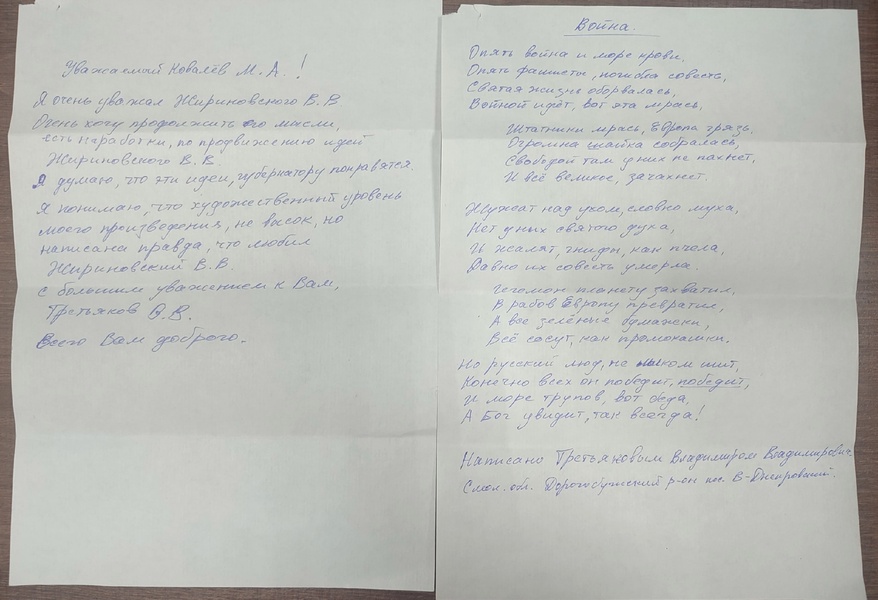 Уважаемый Ковалёв М.А.!
Я очень уважал Жириновского В.В
Очень хочу продолжить его мысли,
есть наработки, по продвижению идей
Жириновского В.В.
Я думаю, что эти идеи, губернатору понравятся.
Я понимаю, что художественный уровень
моего произведения, не высок, но
написана правда, что любил
Жириновский В.В.
С большим уважением к Вам,
Третьяков В.В.
Всего Вам доброго.
Война.
Опять война и море крови.
Опять фашисты, погибла совесть,
Святая жизнь оборвалась,
Войной идёт, вот эта мразь,
Штатники мразь, Европа грязь.
Огромна шайка собралась,
Свободой там у них не пахнет,
И всё великое, зачахнет.
Жужжат над ухом, словно муха,
Нет у них святого духа,
И жалят, гниды, как пчела,
Давно их совесть умерла.
Гегемон планету захватил,
В рабов Европу превратил,
А все зелёные бумажки,
Всё сосут, как промокашки.
Но русский люд, не лыком шит,
Конечно всех он победит, победит,
И море трупов, вот беда,
А Бог увидит, так всегда!
Написано Третьяковым Владимиром Владимирович
Смол. обл. Дорогобужский р-он пос. В-Днепровский.